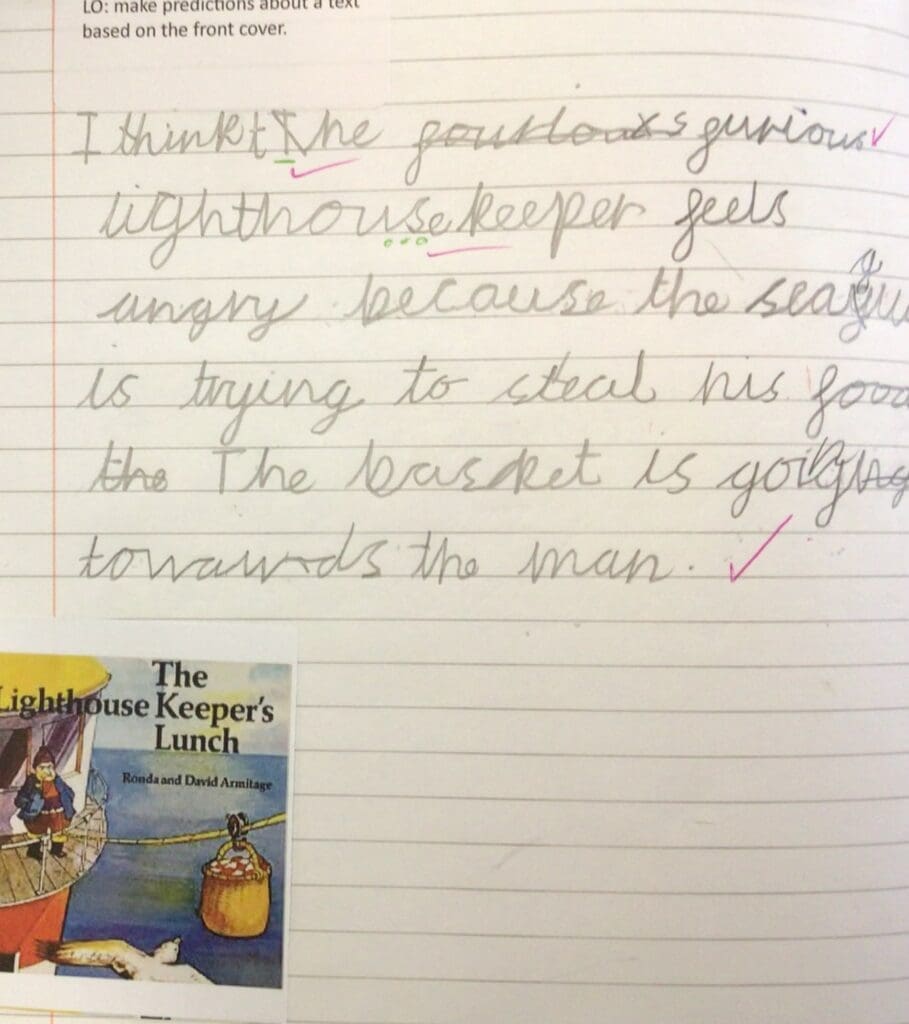 LO: make predictions about a text
based on the front cover.
I think the gurious
lighthouse keeper feels
angry because the seagu
is trying to steal his food
the The basket is going
towawrds the man.
The
Lighthouse Keeper's
Lunch
Ronda and David Armitage